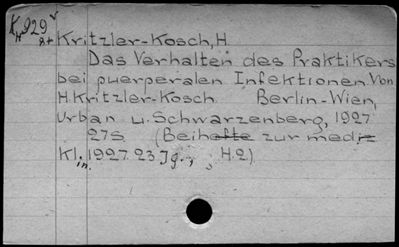 K 929
H
8+ Kritzler-Kosch, H
Das Verhalten des Praktikers
bei puerperalen Infektionen. Von
H. Kritzler-Kosch Berlin-Wien,
Urban u. Schwarzenberg, 1927
27s (Beihefte zur mediz
Kl. in. 1927. 23 Jg., ; H.2)